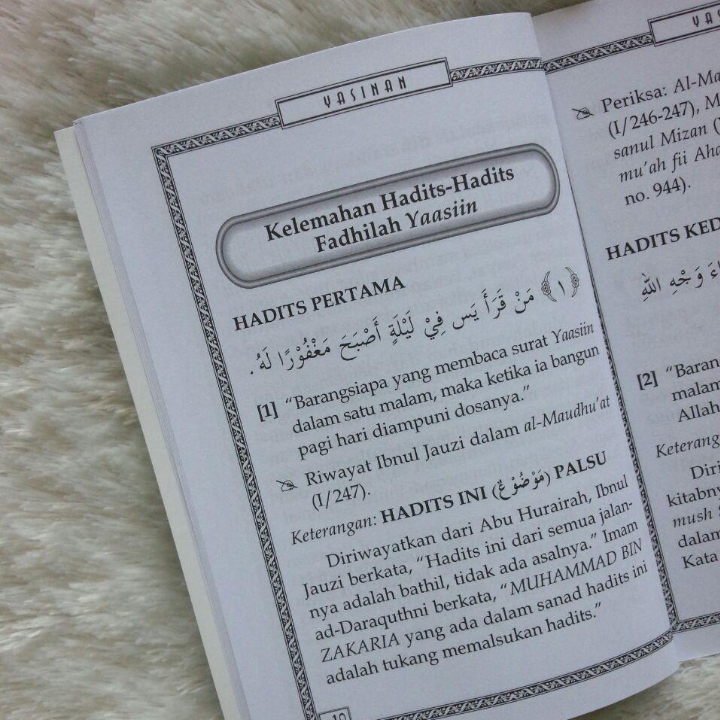 YASINAN
Kelemahan Hadits-Hadits
Fadhilah Yaasiin
HADITS PERTAMA
﴿١﴾ مَنْ قَرَأَ يَس فِيْ لَيْلَةٍ أَصْبَحَ مَغْفُوْرًا لَهُ.
[1] “Barangsiapa yang membaca surat Yaasiin
dalam satu malam, maka ketika ia bangun
pagi hari diampuni dosanya.”
Riwayat Ibnul Jauzi dalam al-Maudhu'at
(I/247).
Keterangan: HADITS INI (مَوْضُوْعٌ) PALSU
Diriwayatkan dari Abu Hurairah, Ibnul
Jauzi berkata, “Hadits ini dari semua jalan-
nya adalah bathil, tidak ada asalnya.” Imam
ad-Daraquthni berkata, “MUHAMMAD BIN
ZAKARIA yang ada dalam sanad hadits ini
adalah tukang memalsukan hadits.”
YAS
Periksa: Al-Ma
(I/246-247), M
sanul Mizan (
mu'ah fii Aha
no. 944).
HADITS KED
وَجْهِ اللهِ
[2] “Baran
malam
Allah
Keterang
Diri
kitabny
mush
dalam
Kata